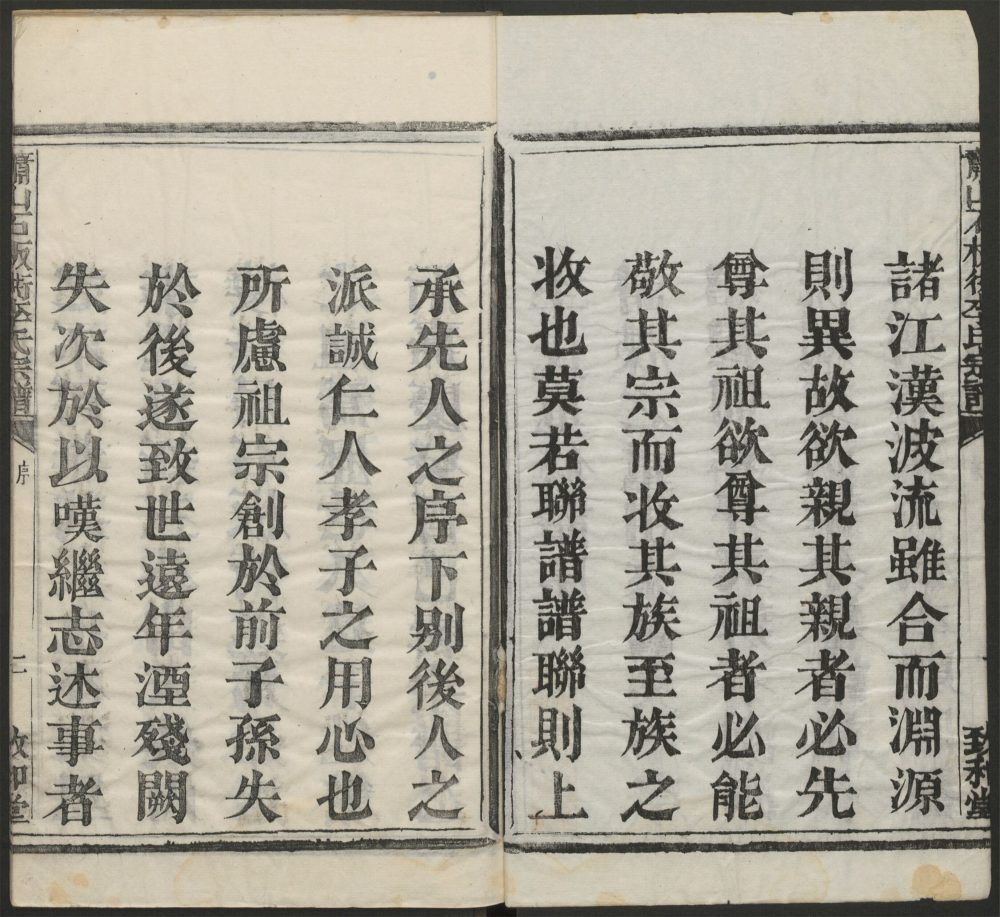 蕭山石板街李氏宗譜
致和堂
諸江漢波流雖合而淵源
則異故欲親其親者必先
尊其祖欲尊其祖者必能
敬其宗而收其族至族之
收也莫若聯譜譜聯則上
承先人之序下别後人之
派誠仁人孝子之用心也
所慮祖宗創於前子孫失
於後遂致世遠年湮殘闕
失次於以嘆繼志述事者
蕭山石板街李氏宗譜
序
二
致和堂